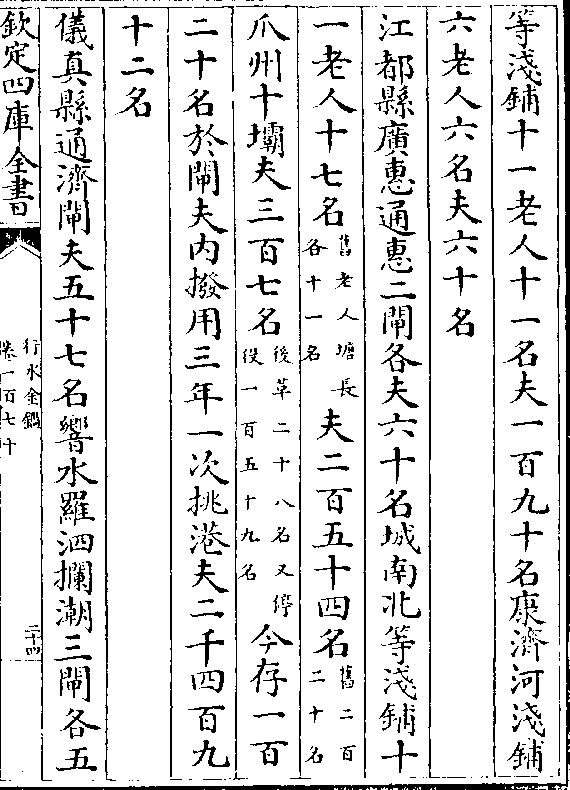 等淺鋪十一老人十一名夫一百九十名康濟河淺鋪
六老人六名夫六十名
江都縣廣惠通惠二閘各夫六十名城南北等淺鋪十
一老人十七名舊老人塘長各十一名夫二百五十四名舊二百二十名
爪州十壩夫三百七名後革二十八名又停役一百五十九名今存一百
二十名於閘夫内撥用三年一次挑港夫二千四百九
十二名
儀真縣通濟閘夫五十七名響水羅泗攔潮三閘各五
欽定四庫全書
行水金鑑
卷一百七十
二十四